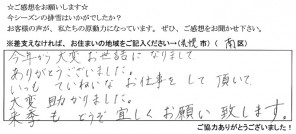 ☆ご感想をお願いします☆
今シーズンの排雪はいかがでしたか?
お客様の声が、私たちの原動力になっています。ぜひ、ご感想をお聞かせ下さい。
※差支えなければ、お住まいの地域をご記入ください→(札幌市)(南区)
今年から大変お世話になりまして
ありがとうございました。
いつもていねいなお仕事をして頂いて
大変助かりました。
来季もどうぞ宜しくお願い致します。
ご協力ありがとうございました!